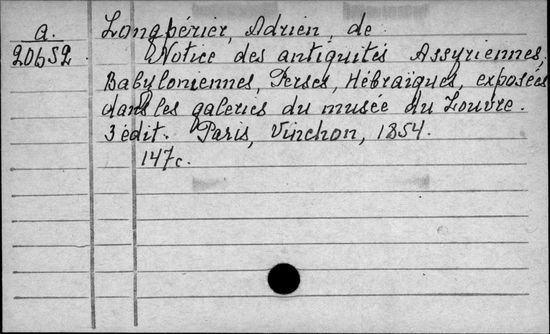 a. Longpérier, Adrien, de
20652 Notice des antiquités Assyriennes,
Babyloniennes, Perses, Hébraïques, exposées
dans les galeries du musée du Louvre.
3 édit. Paris, Vinchon, 1854.
147c.